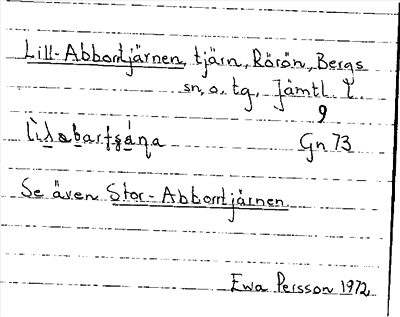 Lill-Abborrtjärnen, tjärn, Rörön, Bergs
sn, o. tg, Jämtl. l.
9
Gn 73
Se även Stor-Abborrtjärnen
Ewa Persson 1972